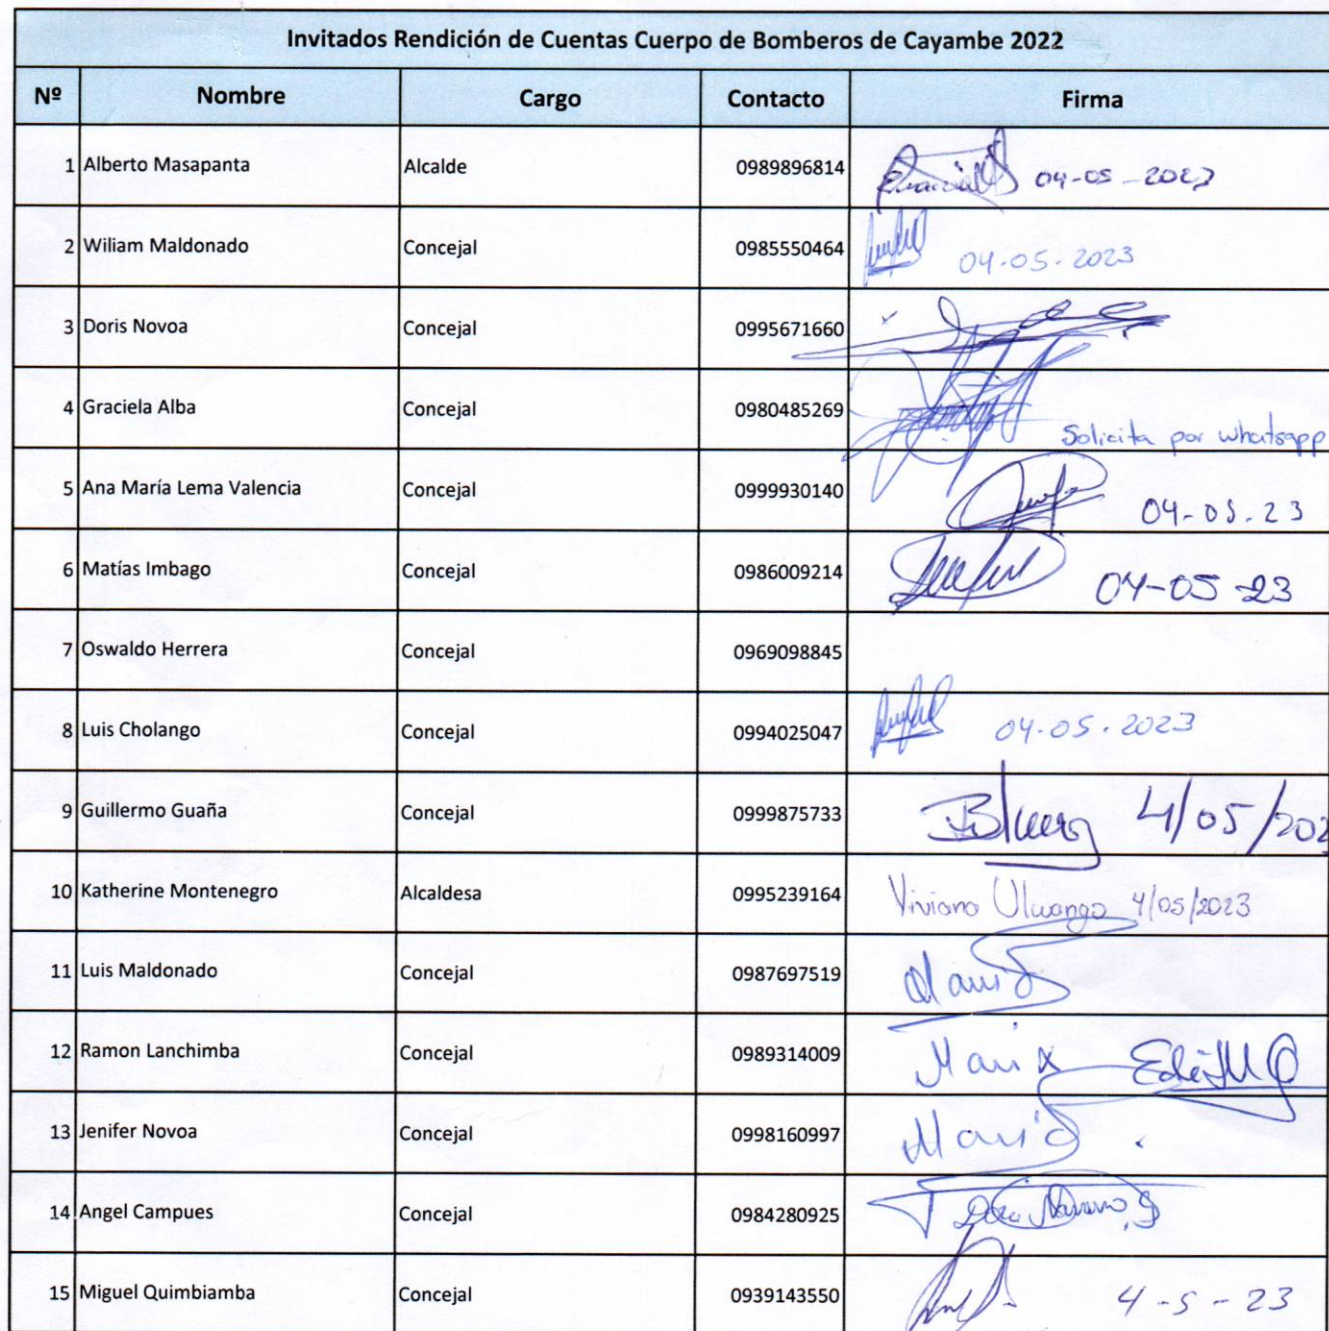 Invitados Rendición de Cuentas Cuerpo de Bomberos de Cayambe 2022
Nº Nombre Cargo Contacto Firma
1 Alberto Masapanta Alcalde 0989896814 04-05-2023
2 Wiliam Maldonado Concejal 0985550464 04-05-2023
3 Doris Novoa Concejal 0995671660
4 Graciela Alba Concejal 0980485269 Solicita por whatsapp
5 Ana María Lema Valencia Concejal 0999930140 04-05-23
6 Matías Imbago Concejal 0986009214 04-05-23
7 Oswaldo Herrera Concejal 0969098845
8 Luis Cholango Concejal 0994025047 04-05-2023
9 Guillermo Guaña Concejal 0999875733 4/05/202
10 Katherine Montenegro Alcaldesa 0995239164 4/05/2023
11 Luis Maldonado Concejal 0987697519
12 Ramon Lanchimba Concejal 0989314009
13 Jenifer Novoa Concejal 0998160997
14 Angel Campues Concejal 0984280925
15 Miguel Quimbiamba Concejal 0939143550 4-5-23